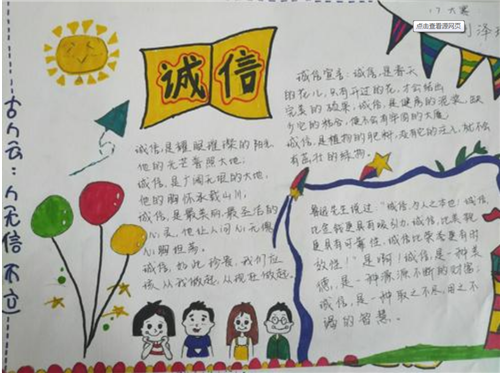 点击查看源网页
诚信
古人云:人无信不立
诚信,是耀眼璀璨的阳光,
他的光芒普照大地;
诚信,是广阔无垠的大地,
他的胸怀承载山川;
诚信,是最美丽、最圣洁的
心灵,他让人问心无愧
,心胸坦荡。
诚信,如此珍贵,我们应
该,从我做起,从现在做起。
诚信宣言:诚信,是春天
的花儿,只有开过的花,才会结出
完美的硕果,诚信,是健康的混泥,缺
少它的粘合,便不会有牢固的大厦,
诚信,是植物的肥料,没有它的注入,就不会
有茁壮的绿物。
鲁迅先生说过:“诚信,为人之本也!诚信,
比金钱更具有吸引力,诚信,比美貌
更具有可靠性,诚信比荣誉更有时
效性!”是啊!诚信,是一种美
德,是一种源源不断的财富;
诚信,是一种取之不尽,用之不
竭的智慧。